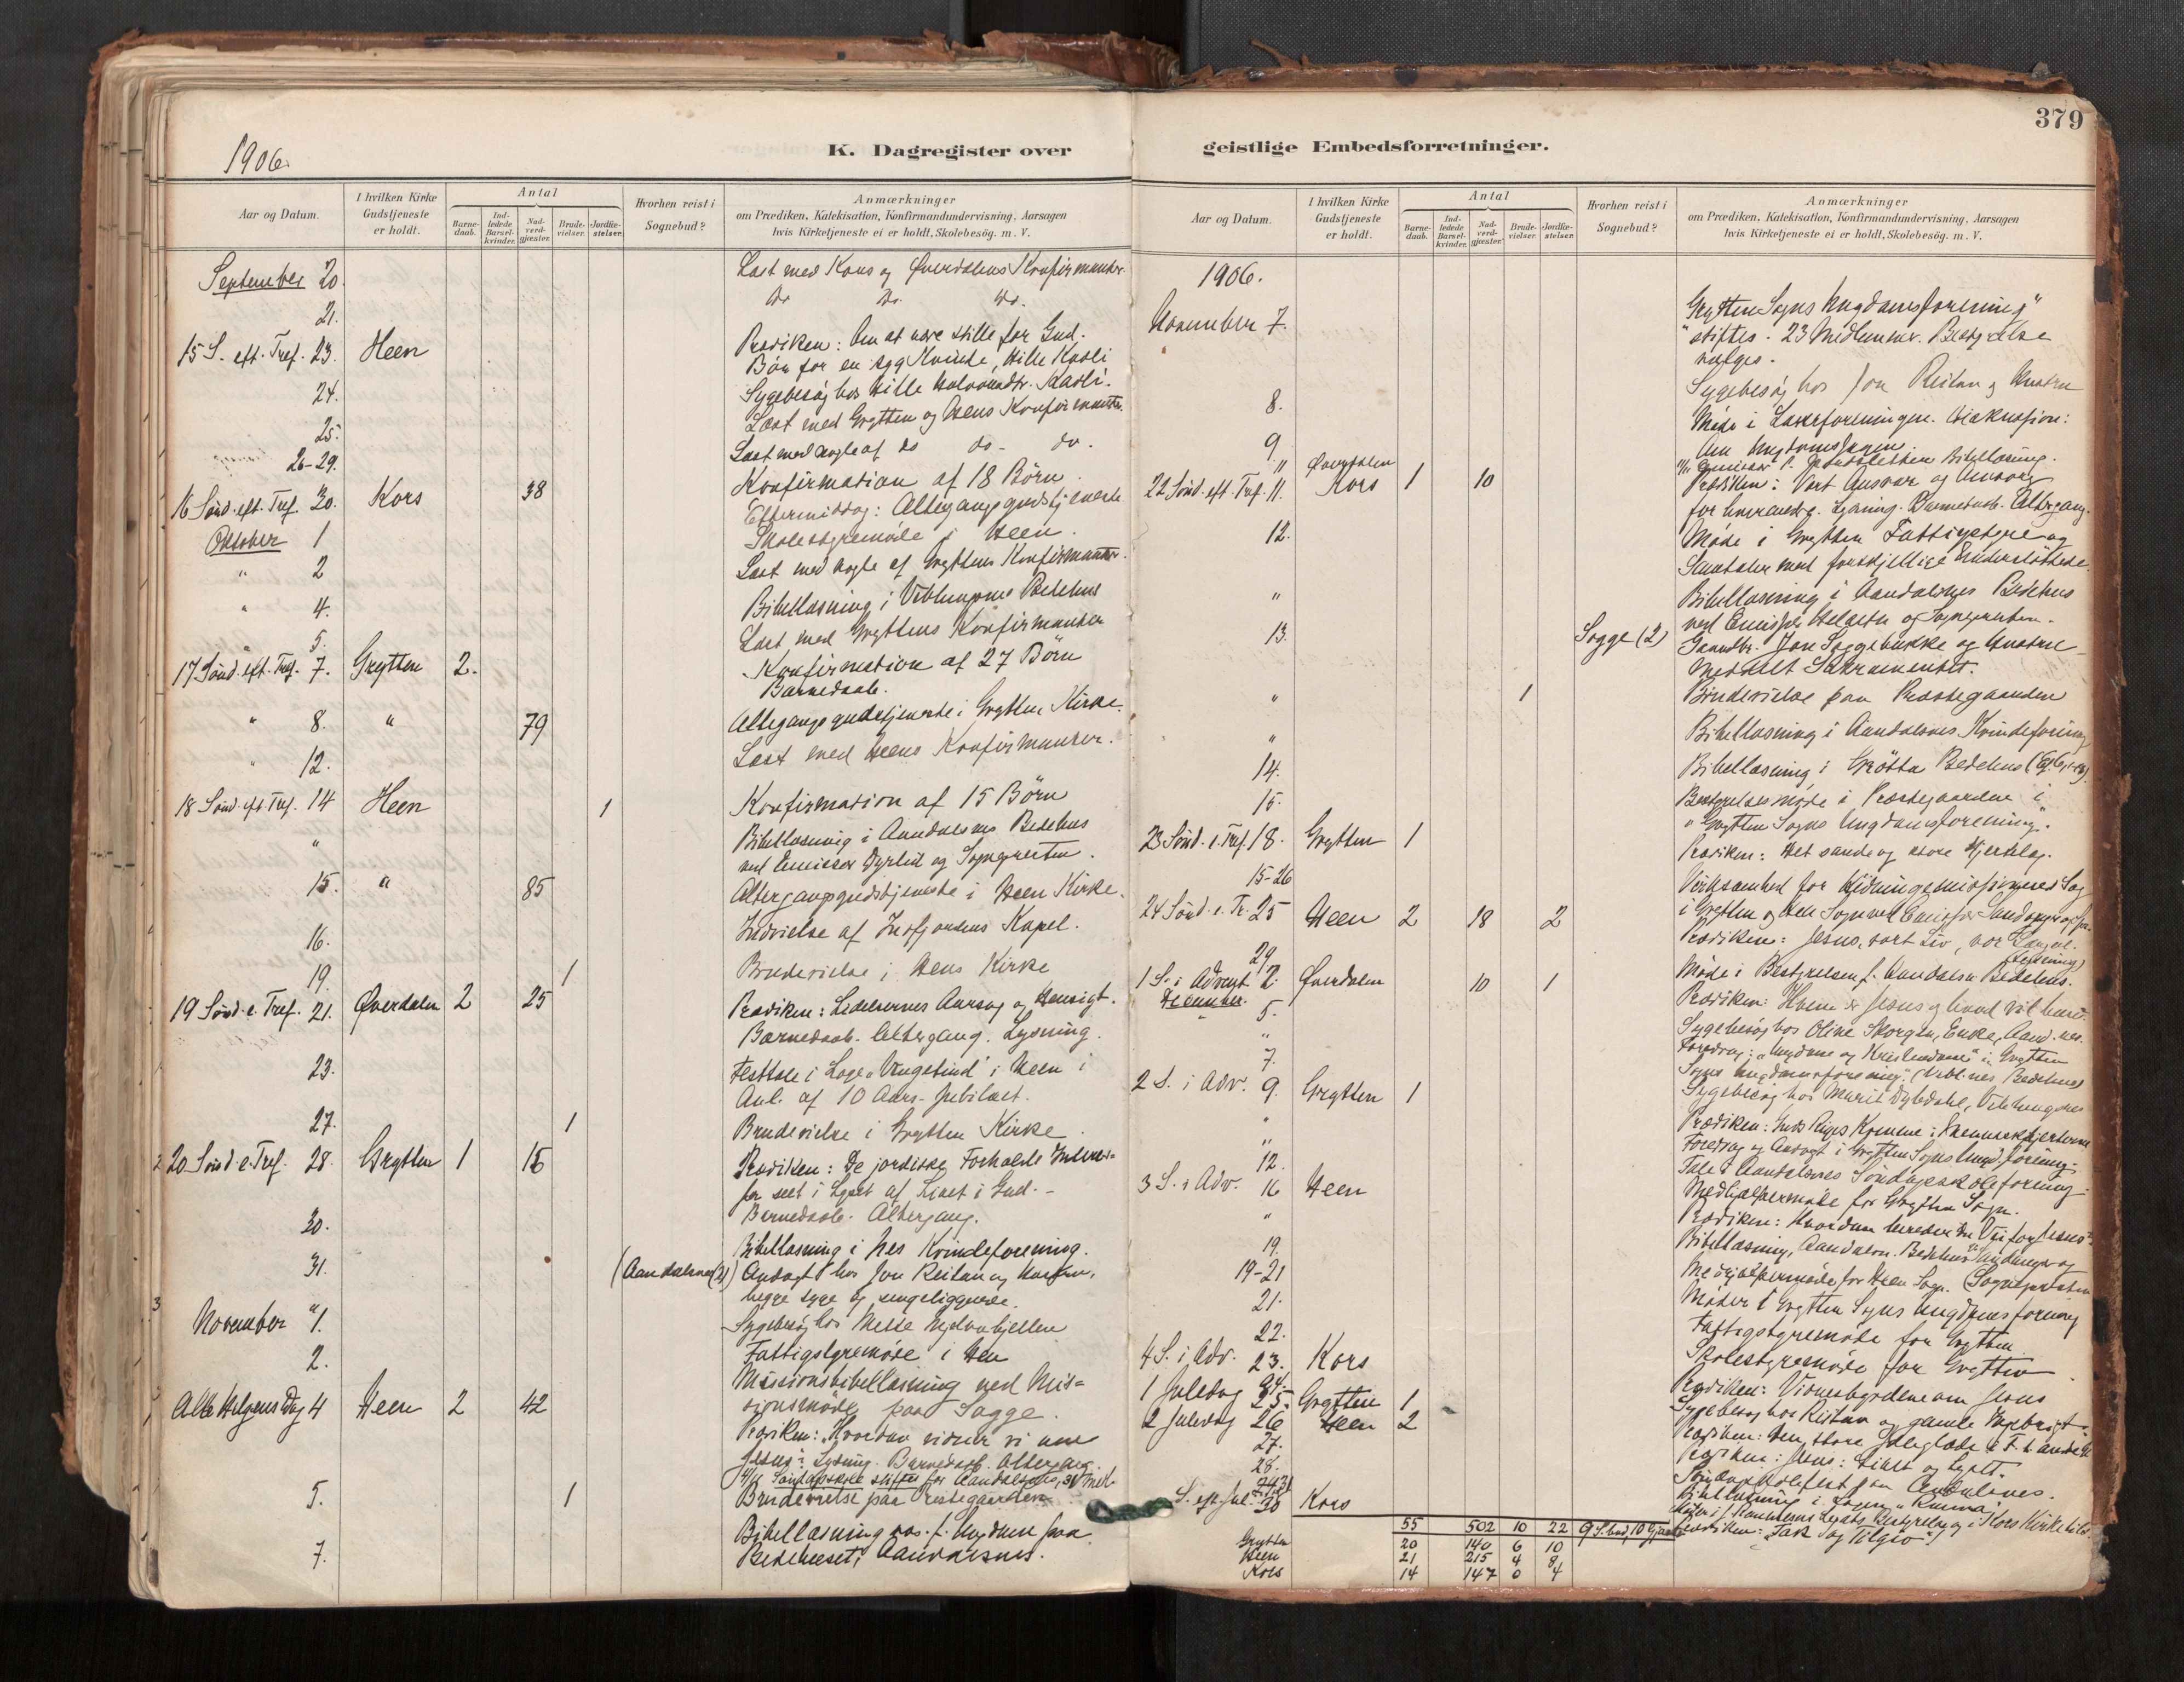 1906.
K. Dagregister over
Aar og Datum.
I hvilken Kirke Gudstjeneste er holdt.
Antal
Barnedaab.
Indledede Barselkvinder.
Nadverdgjæster.
Brudevielser.
Jordfæstelser.
Hvorhen reist i Sognebud?
Anmærkninger
om Prædiken, Katekisation, Konfirmandundervisning, Aarsagen
hvis Kirketjeneste ei er holdt, Skolebesög. m. V.
September 20. Læst med Kors og Øverdalens Konfirmander.
21. do do. do.
15 S. eft. Tref. 23. Heen Prædiken: Om at være stille for Gud.
Bön for en syg Kvinde,
24. Sygebesög hos
Læst med Grytten og Heens Konfirmanter.
25. Læst med nogle af do do- do.
26-29.
16 Sönd. eft. Tref. 30. Kors 38 Konfirmation af 18 Börn.
Eftermiddag: Altergangsgudstjeneste
Oktober 1 Skolestyremöde i Heen.
" 2 Læst med nogle af Gryttens Konfirmanter.
" 4. Bibellæsning i Veblungsnes Bedehus
5. Læst med Gryttens Konfirmanter
17 Sönd. eft. Tref. 7. Grytten 2. Konfirmation af 27 Börn
Barnedaab.
" 8. " 79 Altergangsgudstjeneste i Grytten Kirke.
" 12. Læst med Heens Konfirmanter.
18 Sönd. eft. Tref. 14 Heen 1 Konfirmation af 15 Börn
" Bibellæsning i Aandalsnes Bedehus
ved Emissær Dyrlid og Sognepresten.
15. " 85 Altergangsgudstjeneste i Heen Kirke.
16. Indvielse af Innfjordens Kapel.
19. 1 Brudevielse i Heens Kirke
19 Sönd. e. Tref. 21. Øverdalen 2 25 Prædiken: Lidelsernes Aarsag og Hensigt.
Barnedaab. Altergang. Lysning.
23. Festtale i Loge "Vengetind" i Heen i
Anl. af 10 Aars-Jubilæet.
27. 1 Brudevielse i Grytten Kirke.
20 Sönd. e. Tref. 28. Grytten 1 15 Prædiken: De jordiske Forholds
seet i Lyset af Livet i Gud.-
Barnedaab. Altergang.
30. Bibellæsning i Nes Kvindeforening.
31. (Aandalsnes (2)) Andagt hos Jon Reitan og Hustru,
begge syge og sengeliggende.
November 1. Sygebesög hos
2. Fattigstyremöde i Heen
Missionsbibellæsning ved Mis=
sionsmöde paa Sogge.
Alle Helgens Dag 4 Heen 2 42 Prædiken: Hvordan vidner vi om
Jesus? Lysning. Barnedaab. Altergang.
4/11 Söndagsskole stiftet for Aandalsnes,
5. 1 Brudevielse paa Præstegaarden
7. Bibellæsning for Ungdom paa
Bedehuset, Aandalsnes.
379
geistlige Embedsforretninger.
Aar og Datum.
I hvilken Kirke Gudstjeneste er holdt.
Antal
Barnedaab.
Indledede Barselkvinder.
Nadverdgjæster.
Brudevielser.
Jordfæstelser.
Hvorhen reist i Sognebud?
Anmærkninger
om Prædiken, Katekisation, Konfirmandundervisning, Aarsagen
hvis Kirketjeneste ei er holdt, Skolebesög. m. V.
1906.
November 7. Grytten Sogns Ungdomsforening"
"stiftes. 23 Medlemmer. Bestyrelse
vælges.
Sygebesög hos Jon Reitan og Hustru
8. Möde i Lærerforeningen. Diskussion:
Om Ungdomssagen.
9.
" Bibellæsning.
22 Sönd. eft. Tref. 11. Øverdalen Kors 1 10 Prædiken: Vort Ansvar og Omsorg
for hverandre. Lysning. Barnedaab. Altergang.
12. Möde i Grytten Fattigstyre og
Samtaler med forskjellige Understöttede.
" Bibellæsning i Aandalsnes Bedehus
ved Emissær og Sognepresten.
13. Sogge (2) Gaardbr. Jon Soggebakke og Hustru
meddelt Sakramentet.
" 1 Brudevielse paa Præstegaarden
" Bibellæsning i Aandalsnes Kvindeforening
14. Bibellæsning i Grötta Bedehus
15. Bestyrelsesmöde i Præstegaarden i
"Grytten Sogns Ungdomsforening".
23 Sönd. e. Tref. 18. Grytten 1 Prædiken: Det sande og store Hjertelag.
15-26 Virksomhed for Hedningemissionens Sag
i Grytten og Heen Sogn ved Emissær
24 Sönd. e. Tr. 25 Heen 2 18 2 Prædiken: Jesus, vort Liv, vor
29 Möde i Bestyrelsen f. Aandalsn. Bedehus.
1 S. i Advent 2. Øverdalen 10 1 Prædiken: Hvem er Jesus og hvad vil han?
December. 5. Sygebesög hos Oline Skorgen, Enke, Aand.nes.
" Foredrag: "Ungdom og Kristendom" i Grytten
Sogns Ungdomsforening. (Vebl.nes Bedehus)
7. Sygebesög hos Marit Dybdahl, Veblungsnes
2 S. i Adv. 9. Grytten 1 Prædiken: Guds Riges Komme i Menneskehjerterne
" Foredrag og Andagt i Grytten Sogns Ungd. forening.
" Tale i Aandalsnes Söndagsskoleforening.
12. Medhjælpermöde for Grytten Sogn.
3 S. i Adv. 16 Heen Prædiken: Hvordan bereder Vei for Jesus?
" Bibellæsning, Aandalsn. Bedehus
19. Medhjælpermöde for Heen Sogn. Sognepresten
19-21 Möder i Grytten Sogns Ungdomsforening
21. Fattigstyremöde for Grytten
22. Skolestyremöde for Grytten
4 S. i Adv. 23. Kors Prædiken: Vidnesbyrdene om Jesus
24. Sygebesög hos Reitan og gamle
1 Juledag 25. Grytten 1 Prædiken: Den store Juleglæde
2 Juledag 26 Heen 2 Prædiken: Jesus: Livet og Lyset.
27. Söndagsskolefest paa Aandalsnes.
28. Bibellæsning i Logen "Rauma".
S. eft. Jul. 30 Kors Prædiken: "Tak og Tilgiv"!
55 502 10 22 9 S.bud, 10 Gjæster
Grytten 20 140 6 10
Heen 21 215 4 8
Kors 14 147 0 4